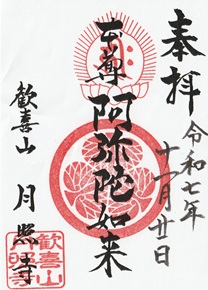 奉拝
令和七年
十一月廿日
本尊 阿弥陀如来
歓喜山 月照寺
歡喜山
月照寺